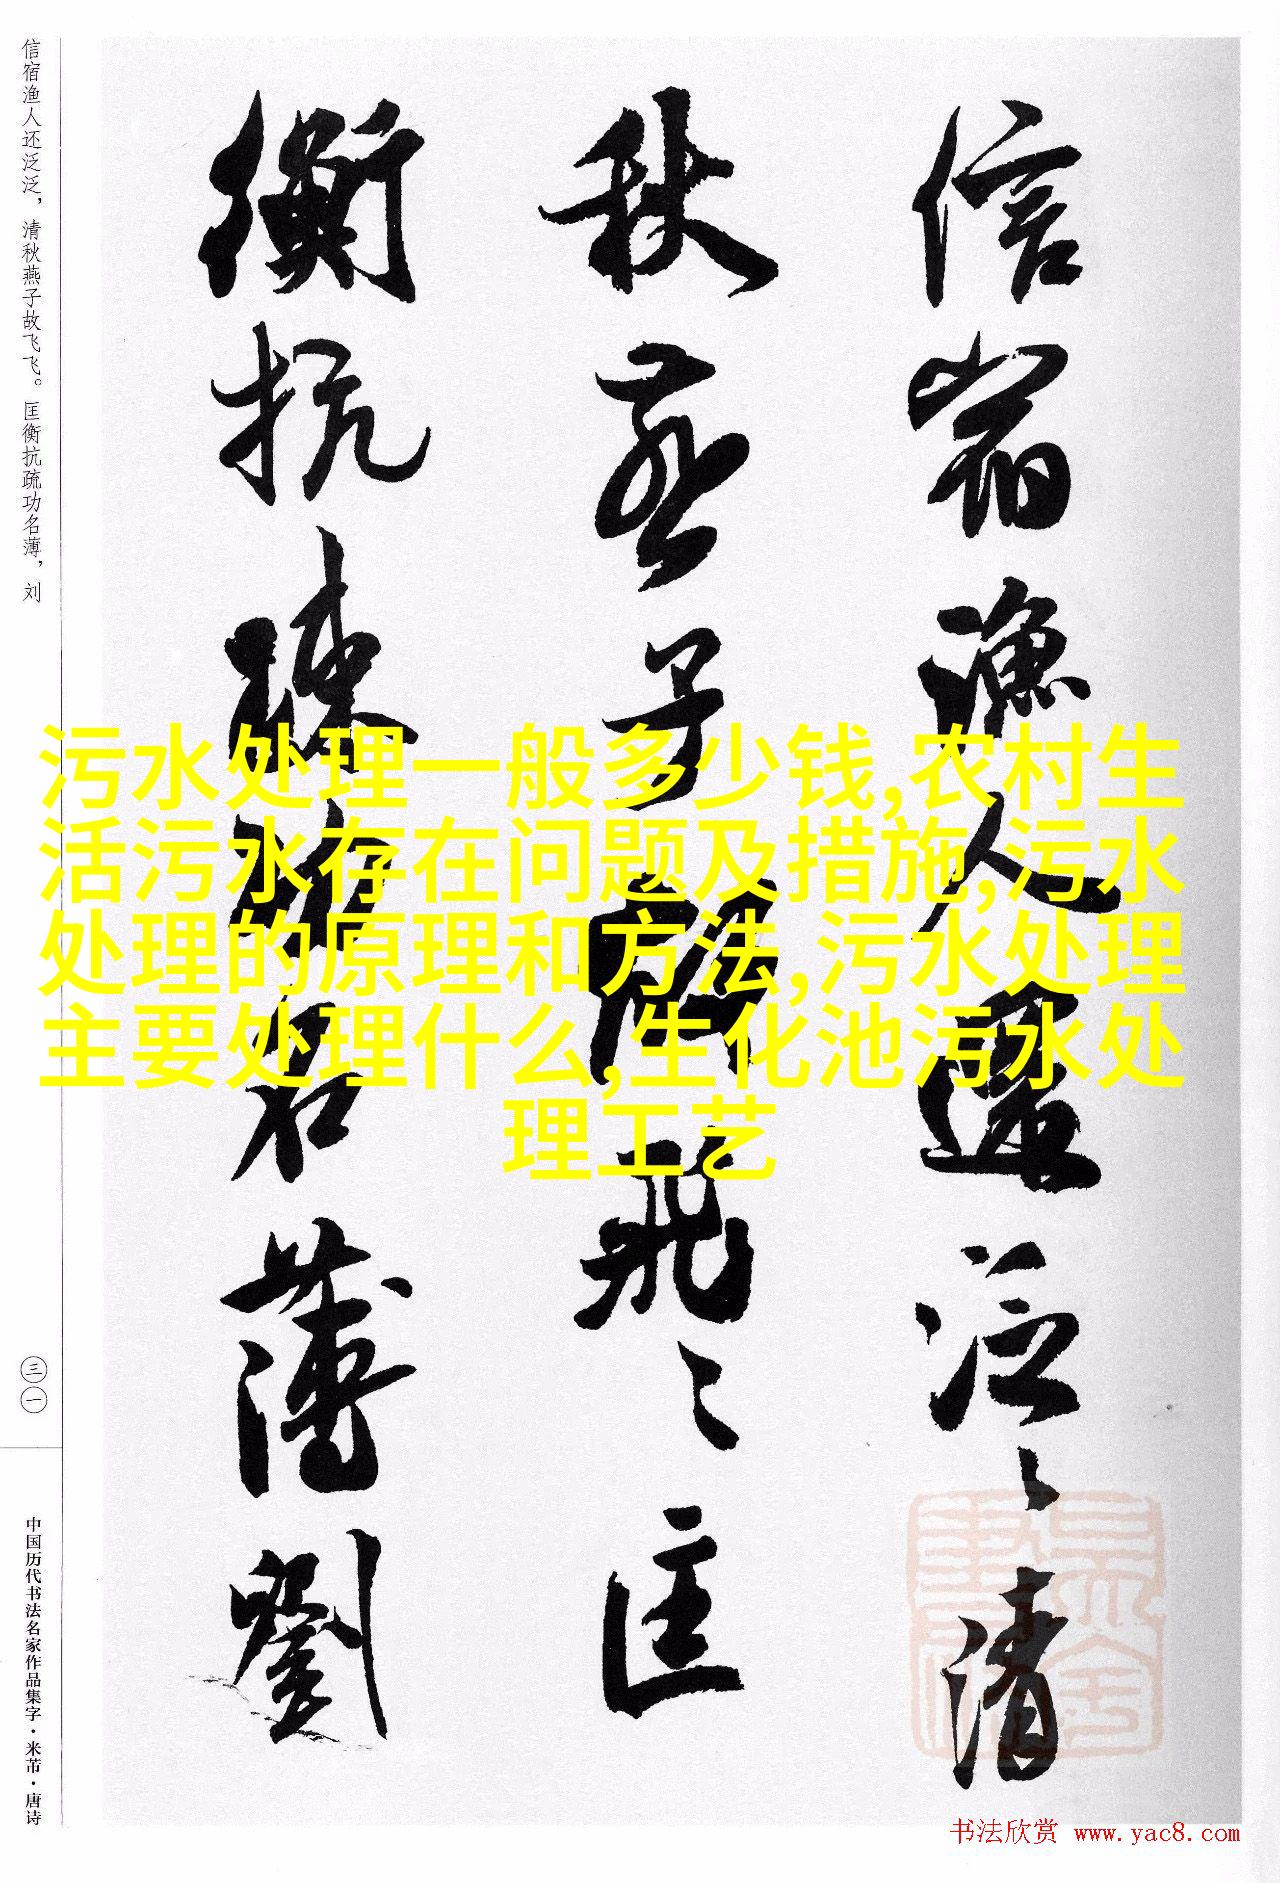 信宿渔人还泛泛，清秋燕子故飞飞。匡衡抗疏功名薄，刘
三一
中国历代书法名家作品集字·米芾·唐诗
信宿漁人還泛〻清
秋燕子故飛〻匡
衡抗疏功名薄劉
污水处理一般多少钱,农村生
活污水存在问题及措施,污水
处理的原理和方法,污水处理
主要处理什么,生化池污水处
理工艺
书法欣赏 www.yac8.com